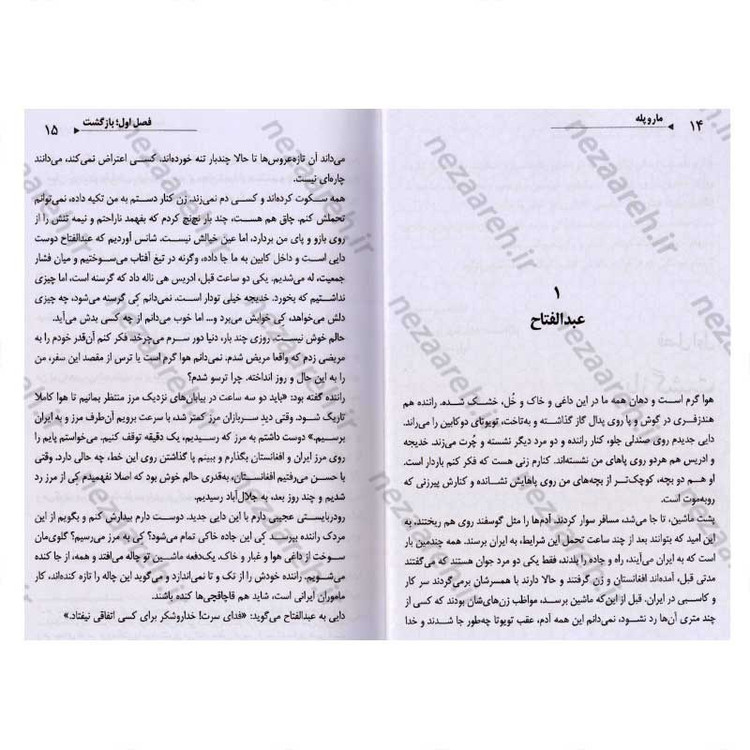 ۱۴ مار و پله
۱
عبدالفتاح
هوا گرم است و دهان همه ما در این داغی و خاک و خُل، خشک شده. راننده هم
هندزفری در گوش و پا روی پدال گاز گذاشته و به‌تاخت، تویوتای دوکابین را می‌راند.
دایی جدیدم روی صندلی جلو، کنار راننده و دو مرد دیگر نشسته و چُرت می‌زند. خدیجه
و ادریس هم هردو روی پاهای من نشسته‌اند. کنارم زنی هست که فکر کنم باردار است.
او هم دو بچه، کوچک‌تر از بچه‌های من روی پاهایش نشانده و کنارش پیرزنی که
روبه‌موت است.
پشت ماشین، تا جا می‌شد، مسافر سوار کردند. آدم‌ها را مثل گوسفند روی هم ریختند، به
این امید که بتوانند بعد از چند ساعت تحمل این شرایط، به ایران برسند. همه چندمین بار
است که به ایران می‌آیند، راه و جاده را بلدند، فقط یکی دو مرد جوان هستند که می‌گفتند
مدتی قبل، آمده‌اند افغانستان و زن گرفتند و حالا دارند با همسرشان برمی‌گردند سر کار
و کاسبی در ایران. قبل از این‌که ماشین برسد، مواظب زن‌های‌شان بودند که کسی از
چند متری آن‌ها رد نشود، نمی‌دانم این همه آدم، عقب تویوتا چه‌طور جا شدند و خدا
فصل اول؛ بازگشت ۱۵
می‌داند آن تازه‌عروس‌ها تا حالا چندبار تنه خورده‌اند، کسی اعتراض نمی‌کند، می‌دانند
چاره‌ای نیست.
همه سکوت کرده‌اند و کسی دم نمی‌زند. زن کنار دستم به من تکیه داده، نمی‌توانم
تحملش کنم. چاق هم هست، چند بار نچ‌نچ کردم که بفهمد ناراحتم و نیمه تنش را از
روی بازو و پای من بردارد، اما عین خیالش نیست. شانس آوردیم که عبدالفتاح دوست
دایی است و داخل کابین به ما جا داده، وگرنه در تیغ آفتاب می‌سوختیم و میان فشار
جمعیت، له می‌شدیم. یکی دو ساعت قبل، ادریس هی ناله داد که گرسنه است، اما چیزی
نداشتیم که بخورد. خدیجه خیلی تودار است. نمی‌دانم کِی گرسنه می‌شود، چه چیزی
دلش می‌خواهد، کِی خوابش می‌برد و... اما خوب می‌دانم از چه کسی بدش می‌آید.
حالم خوش نیست. روزی چند بار، دنیا دور سرم می‌چرخد. فکر کنم آن‌قدر خودم را به
مریضی زدم که واقعا مریض شدم. نمی‌دانم هوا گرم است یا ترس از مقصد این سفر، من
را به این حال و روز انداخته. چرا ترسو شدم؟
راننده گفته بود: «باید دو سه ساعت در بیابان‌های نزدیک مرز منتظر بمانیم تا هوا کاملا
تاریک شود. وقتی دید سربازان مرز کمتر شد، با سرعت برویم آن‌طرف مرز و به ایران
برسیم.» دوست داشتم به مرز که رسیدیم، یک دقیقه توقف کنیم. می‌خواستم پایم را
روی مرز ایران و افغانستان بگذارم و ببینم پا گذاشتن روی این خط، چه حالی دارد. وقتی
با حسن می‌رفتیم افغانستان، به‌قدری حالم خوش بود که اصلا نفهمیدم کِی از مرز رد
شدیم و چند روز بعد، به جلال‌آباد رسیدیم.
رودربایستی عجیبی دارم با این دایی جدید. دوست دارم بیدارش کنم و بگویم از این
مردک راننده بپرسد کِی این جاده خاکی تمام می‌شود؟ کِی به مرز می‌رسیم؟ گلوی‌مان
سوخت از داغی هوا و غبار و خاک. یک‌دفعه ماشین تو چاله می‌افتد و همه، از جا کنده
می‌شویم. راننده خودش را از تک و تا نمی‌اندازد و می‌گوید این چاله را تازه کنده‌اند، کار
ماموران ایرانی است، شاید هم قاچاقچی‌ها کنده باشند.
دایی به عبدالفتاح می‌گوید: «فدای سرت! خداروشکر برای کسی اتفاقی نیفتاد.»
nezaareh.ir